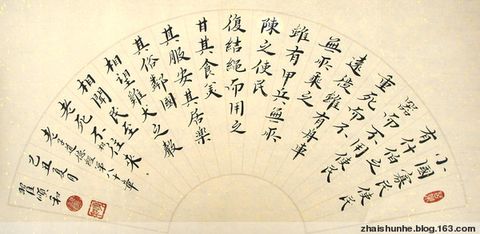 小國寡民使
有什伯之
器而不用使民
重死而不
遠徙雖有舟車
無所乘之
雖有甲兵無所
陳之使民
復結繩而用之
甘其食美
其服安其居樂
其俗鄰國
相望雞犬之聲
相聞民至
老死不相往來
老子道德經第八十章
己丑夏月
翟順和
zhaishunhe.blog.163.com